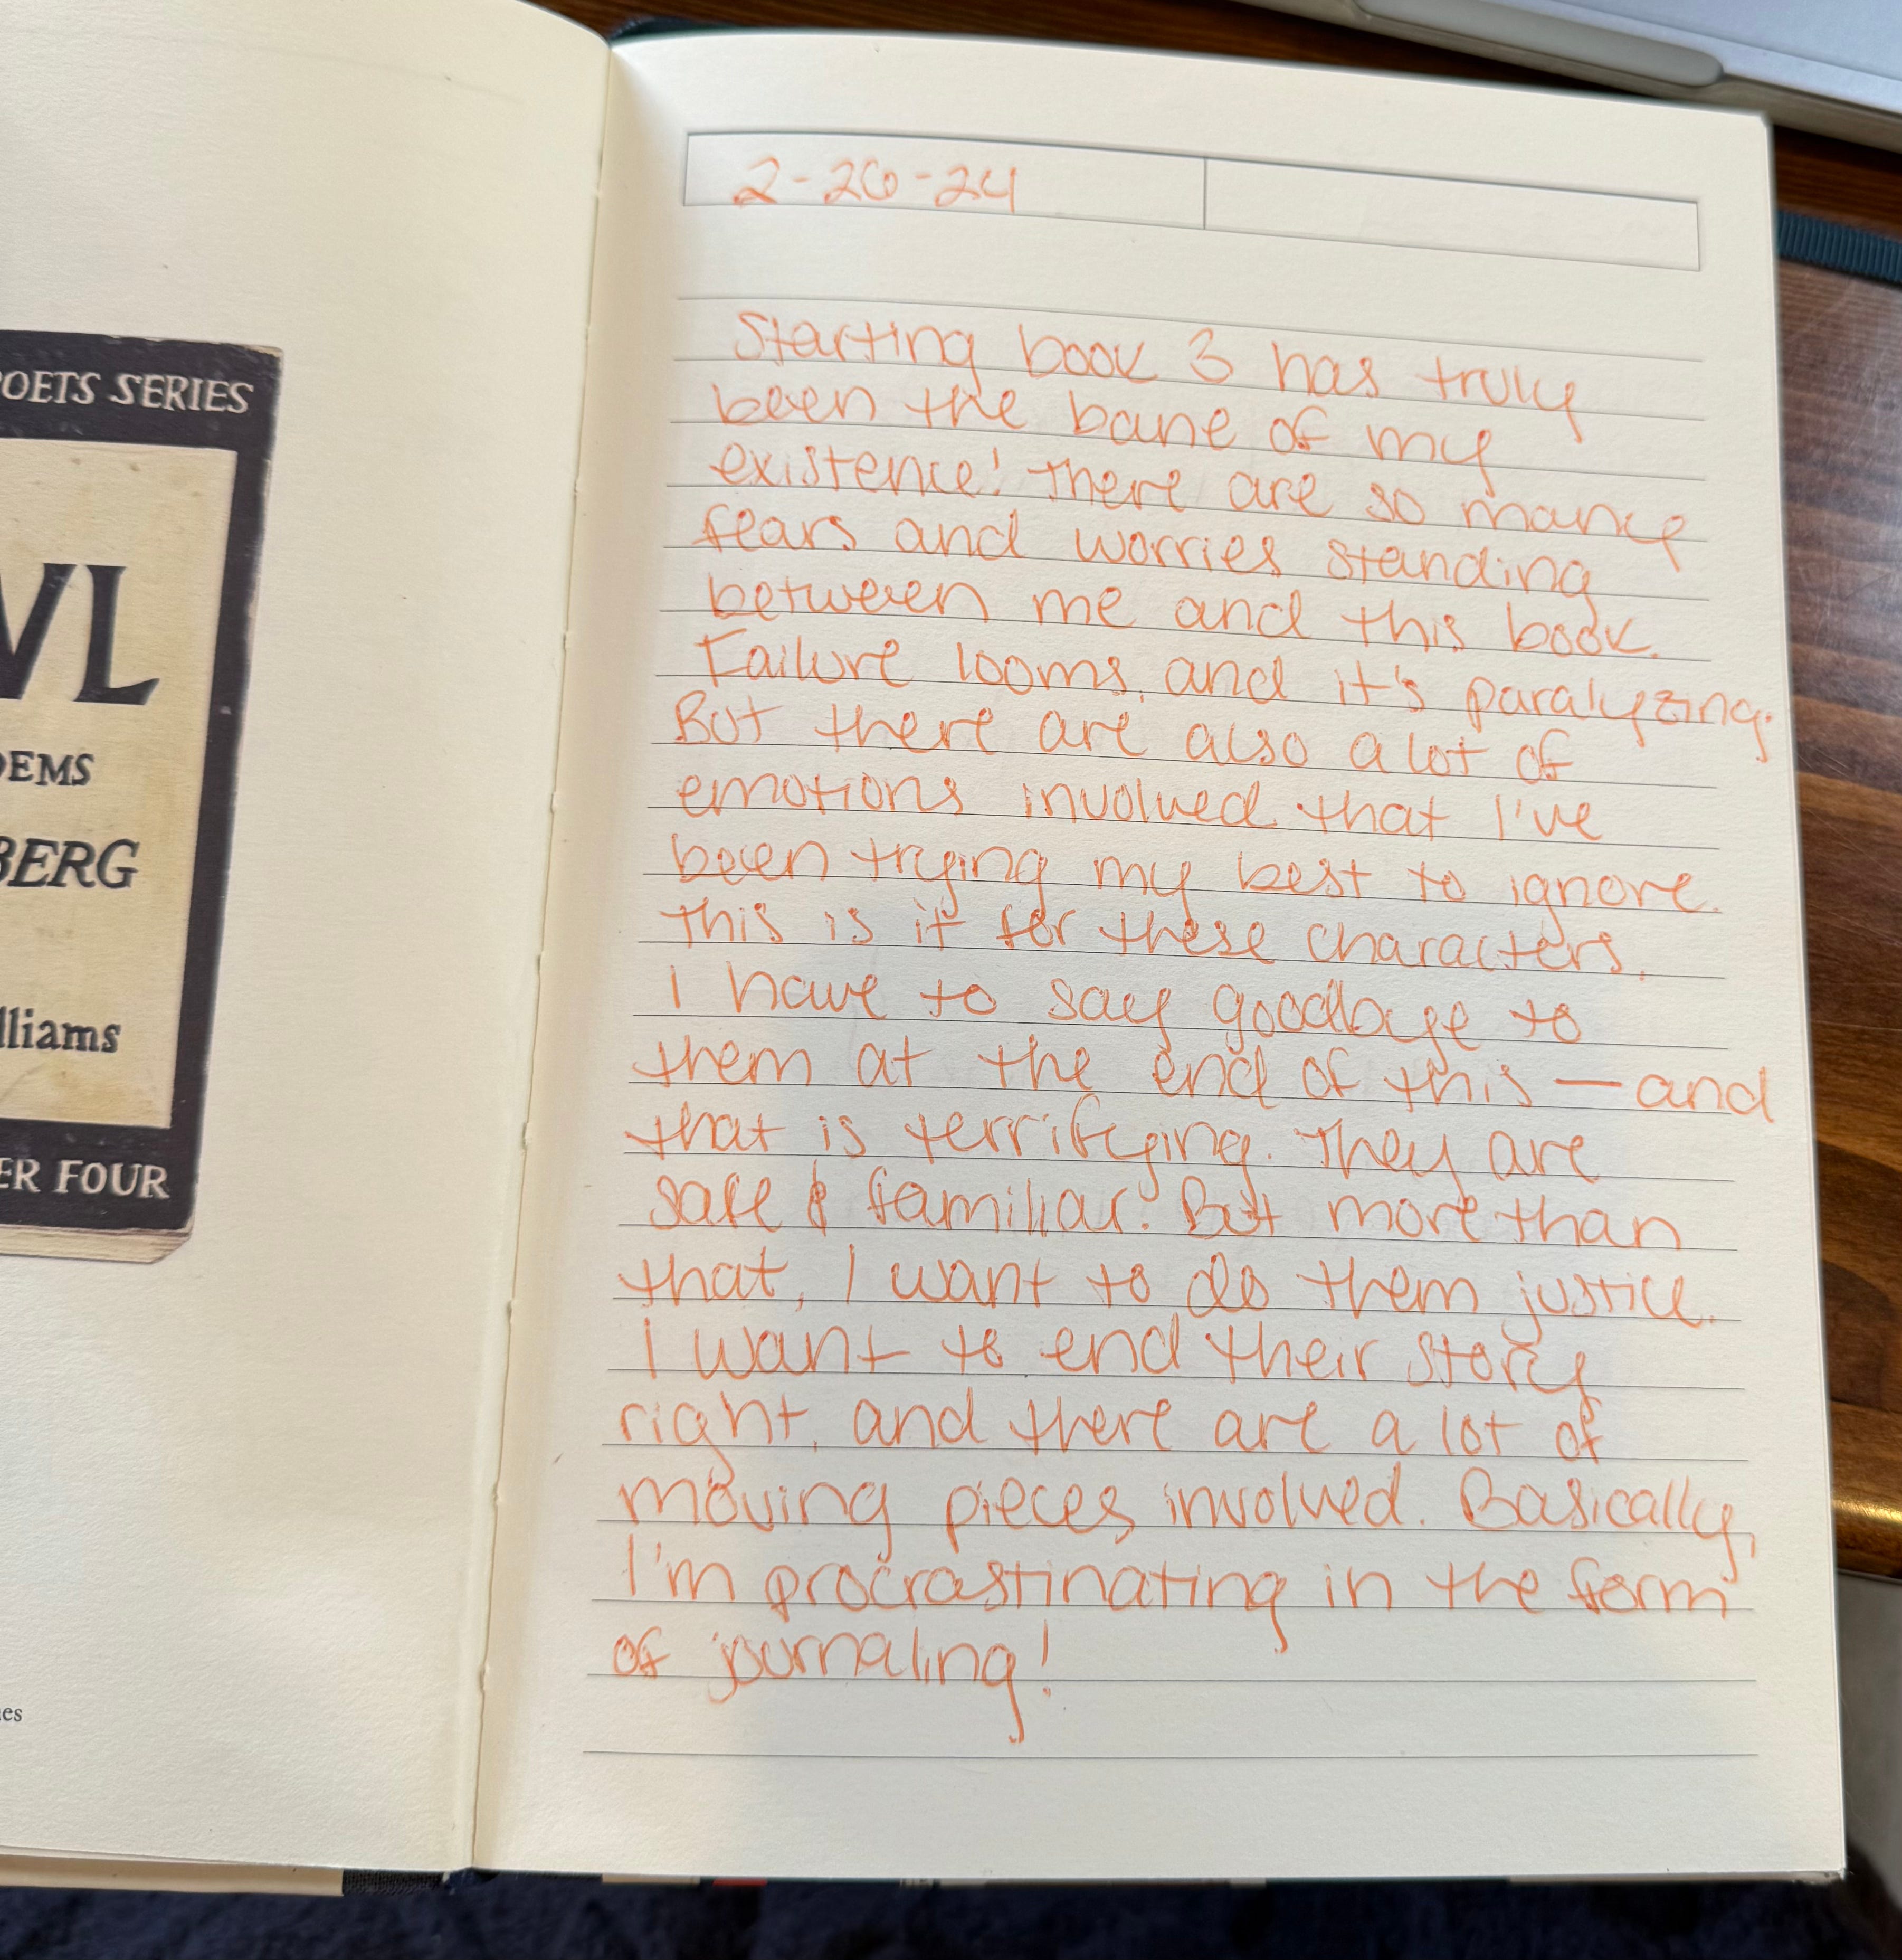 OETS SERIES
WL
EMS
BERG
lliams
ER FOUR
es
2-26-24
Starting book 3 has truly
been the bane of my
existence! There are so many
fears and worries standing
between me and this book.
Failure looms, and it's paralyzing.
But there are also a lot of
emotions involved that I've
been trying my best to ignore.
This is it for these characters.
I have to say goodbye to
them at the end of this — and
that is terrifying. They are
safe & familiar. But more than
that, I want to do them justice.
I want to end their story
right, and there are a lot of
moving pieces involved. Basically,
I'm procrastinating in the form
of journaling!